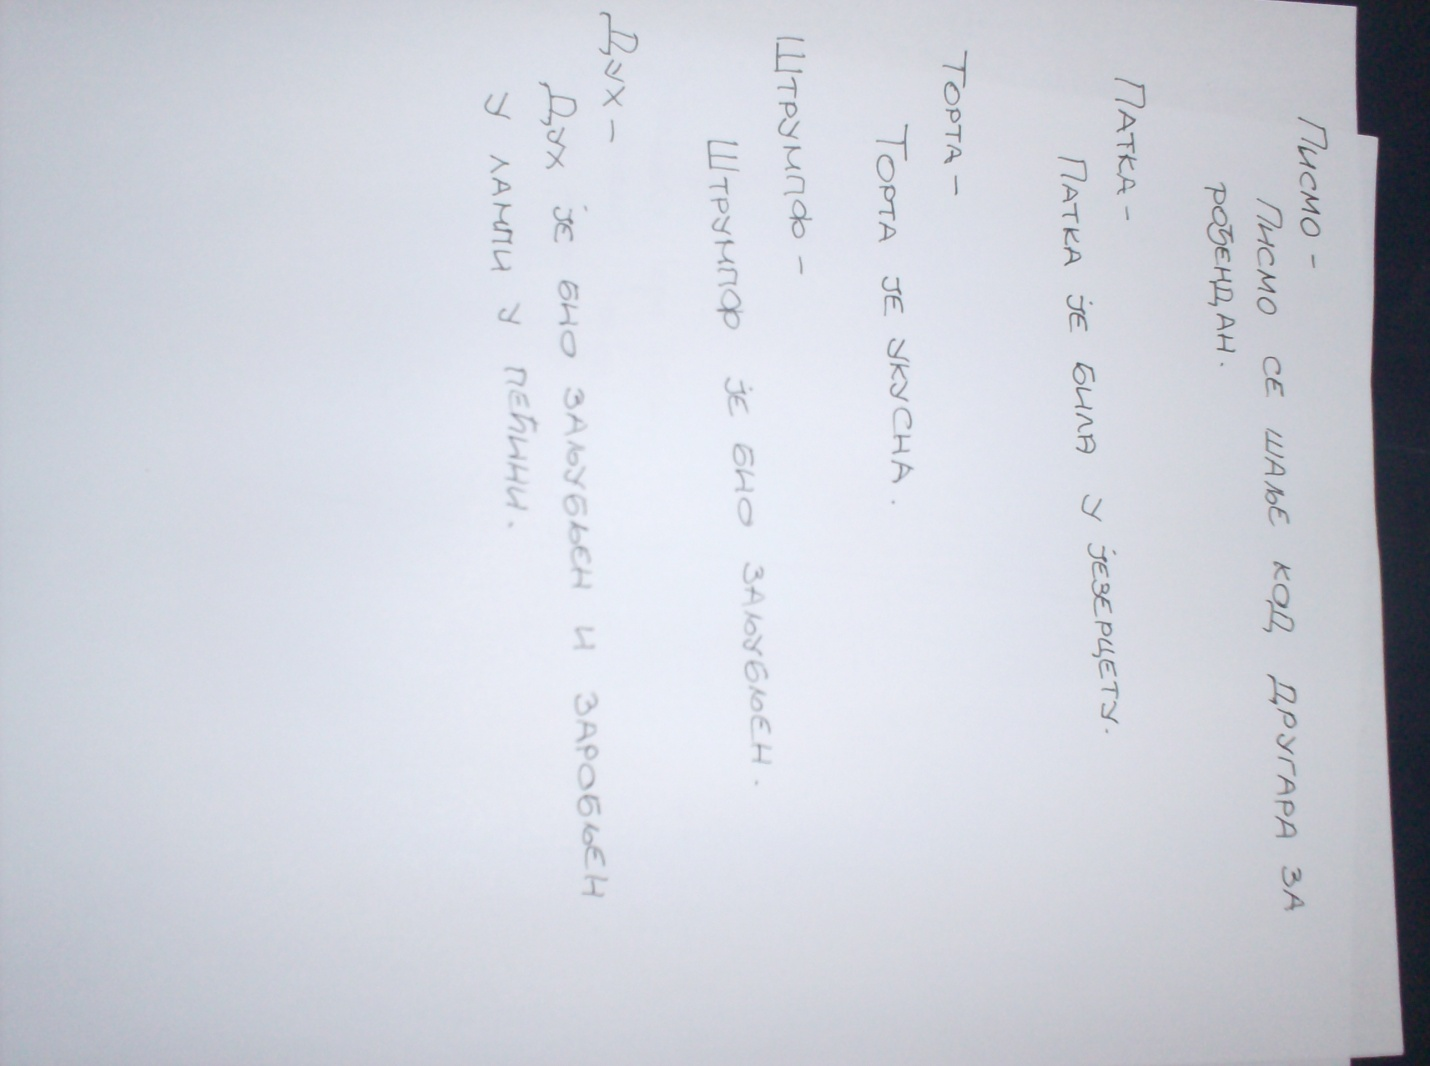 Писмо -
Писмо се шаље код другара за
рођендан.
Патка -
Патка је била у језерцету.
Торта -
Торта је укусна.
Штрумпф -
Штрумпф је био заљубљен.
Дух -
Дух је био заљубљен и заробљен
у лампи у пећини.